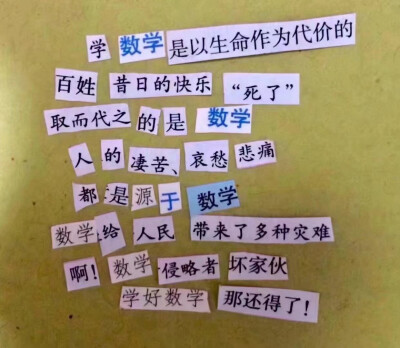 学数学是以生命作为代价的
百姓昔日的快乐“死了”
取而代之的是数学
人的凄苦、哀愁悲痛
都是源于数学
数学给人民带来了多种灾难
啊！数学侵略者坏家伙
学好数学那还得了！